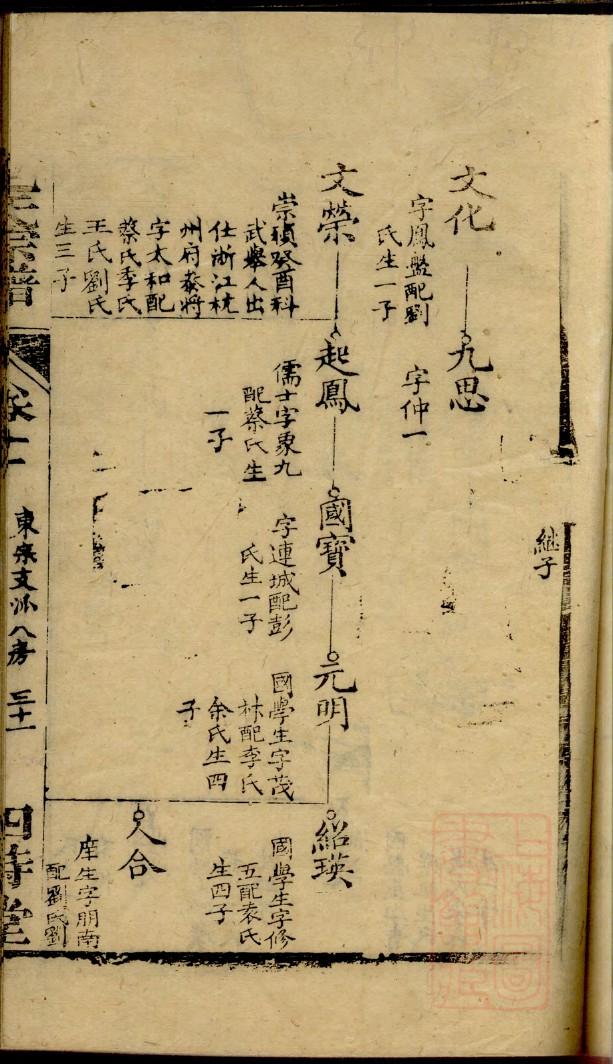 継子
文化
字鳳盤配劉
氏生一子
九思
字仲一
文榮
崇禎癸酉科
武舉人出
仕浙江杭
州府泰將
字太和配
蔡氏季氏
王氏劉氏
生三子
起鳳
儒士字象九
配蔡氏生
一子
國寶
字連城配彭
氏生一子
元明
國學生字茂
林配李氏
余氏生四
子
紹瑛
國學生字修
五配袁氏
生四子
人合
庠生字朋南
配劉氏劉
宗譜
卷十一
東宗支派八房
三十一